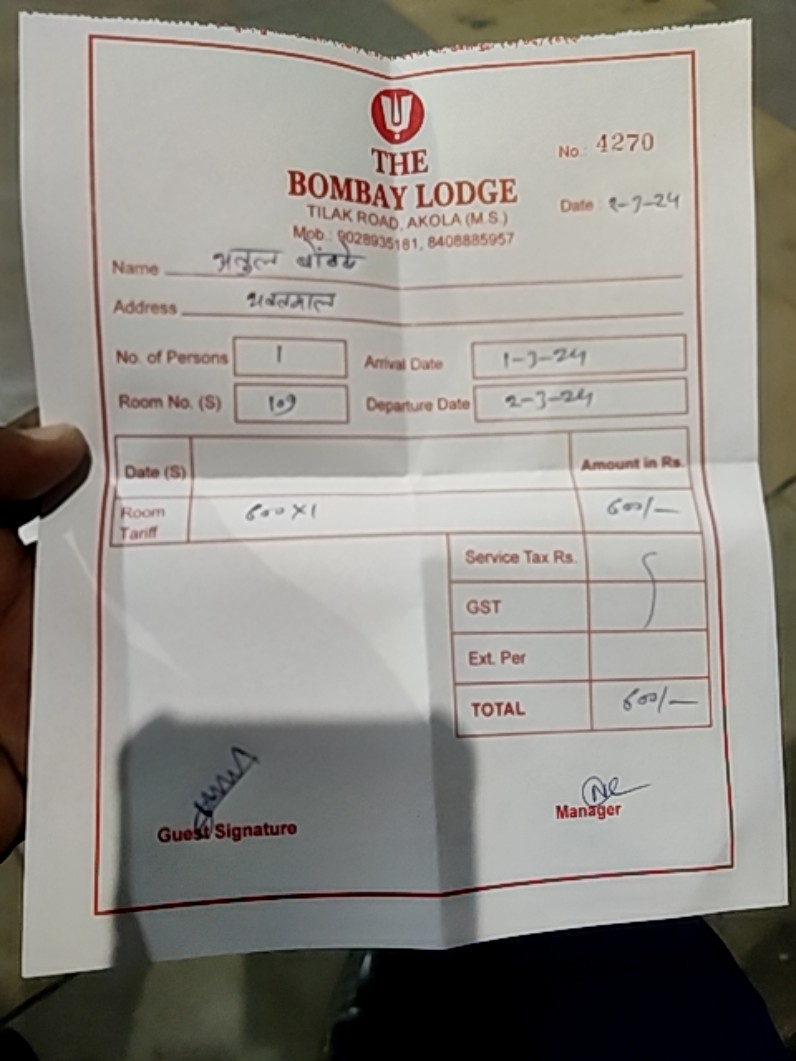 THE
BOMBAY LODGE
TILAK ROAD, AKOLA (M.S.)
Mob.: 9028935181, 8408885957
No.: 4270
Date : 2-3-24
Name अतुल
Address
No. of Persons 1 Arrival Date 1-3-24
Room No. (S) 109 Departure Date 2-3-24
Date (S) Amount in Rs.
Room Tariff 600 X 1 600/-
Service Tax Rs.
GST
Ext. Per
TOTAL 600/-
Guest Signature Manager